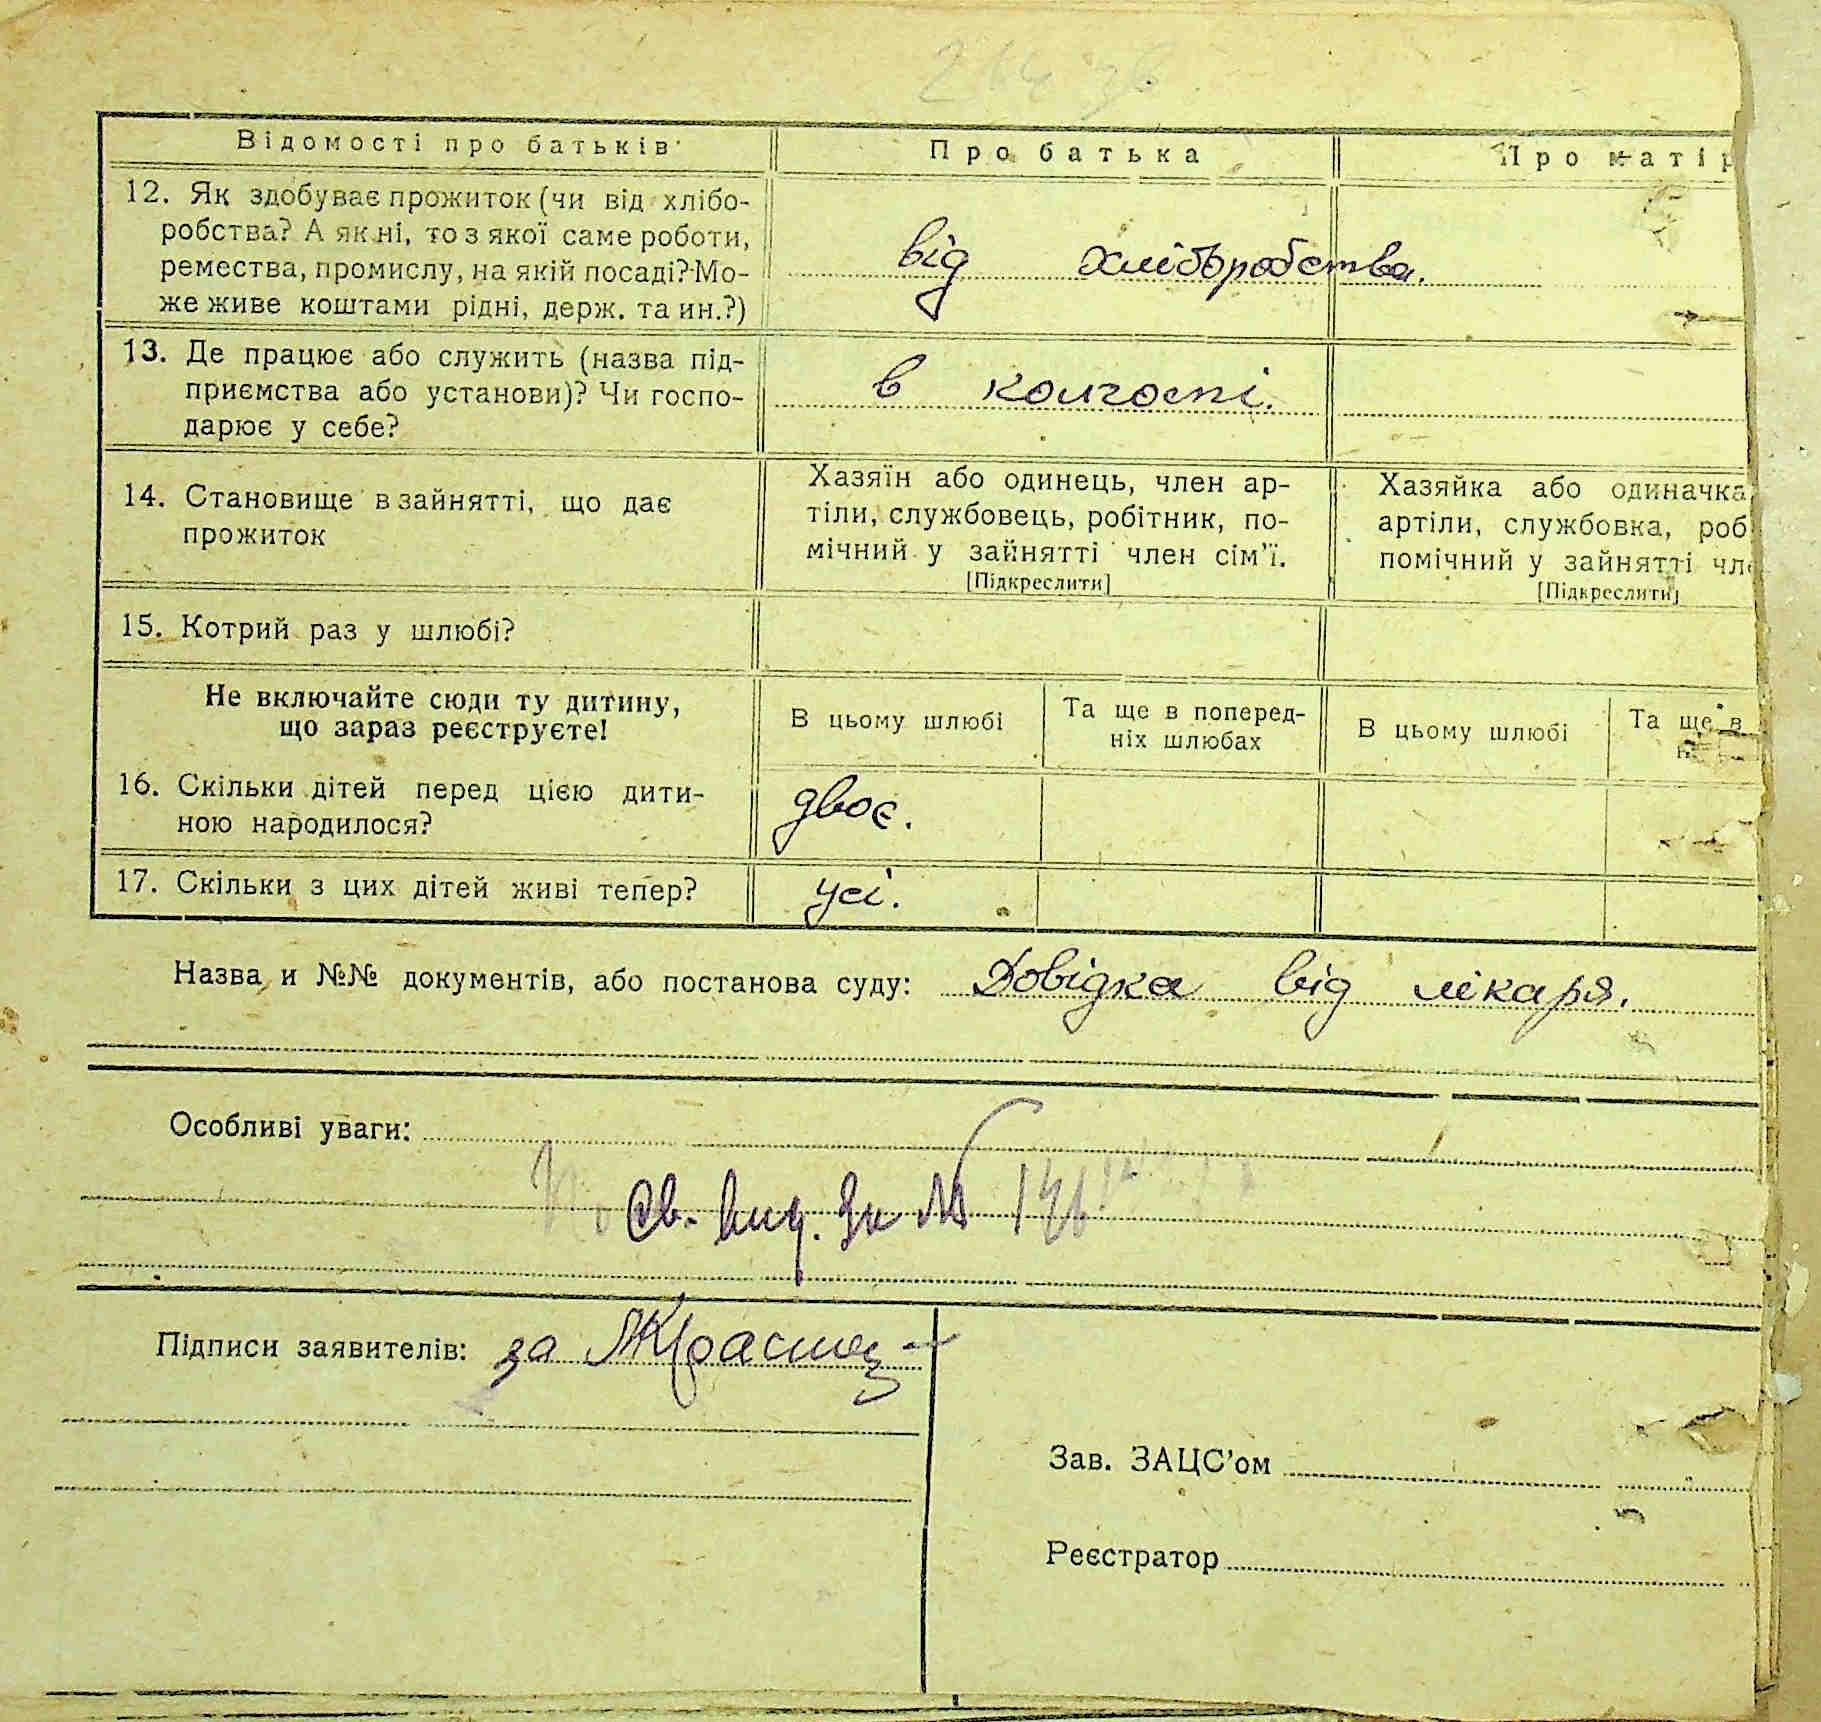 Відомості про батьків
Про батька
Про матір
12. Як здобуває прожиток (чи від хлібо-
робства? А як ні, то з якої саме роботи,
ремества, промислу, на якій посаді? Мо-
же живе коштами рідні, держ. та ин.?)
від хліборобства.
13. Де працює або служить (назва під-
приємства або установи)? Чи госпо-
дарює у себе?
в колгоспі.
14. Становище в зайнятті, що дає
прожиток
Хазяїн або одинець, член ар-
тіли, службовець, робітник, по-
мічний у зайнятті член сім’ї.
[Підкреслити]
Хазяйка або одиначка,
артіли, службовка, роб
помічний у зайнятті чле
[Підкреслити]
15. Котрий раз у шлюбі?
Не включайте сюди ту дитину,
що зараз реєструєте!
В цьому шлюбі
Та ще в поперед-
ніх шлюбах
В цьому шлюбі
Та ще в
16. Скільки дітей перед цією дити-
ною народилося?
двоє.
17. Скільки з цих дітей живі тепер?
усі.
Назва и №№ документів, або постанова суду: Довідка від лікаря.
Особливі уваги:
Св. вид. За №
Підписи заявителів: за
Зав. ЗАЦС’ом
Реєстратор